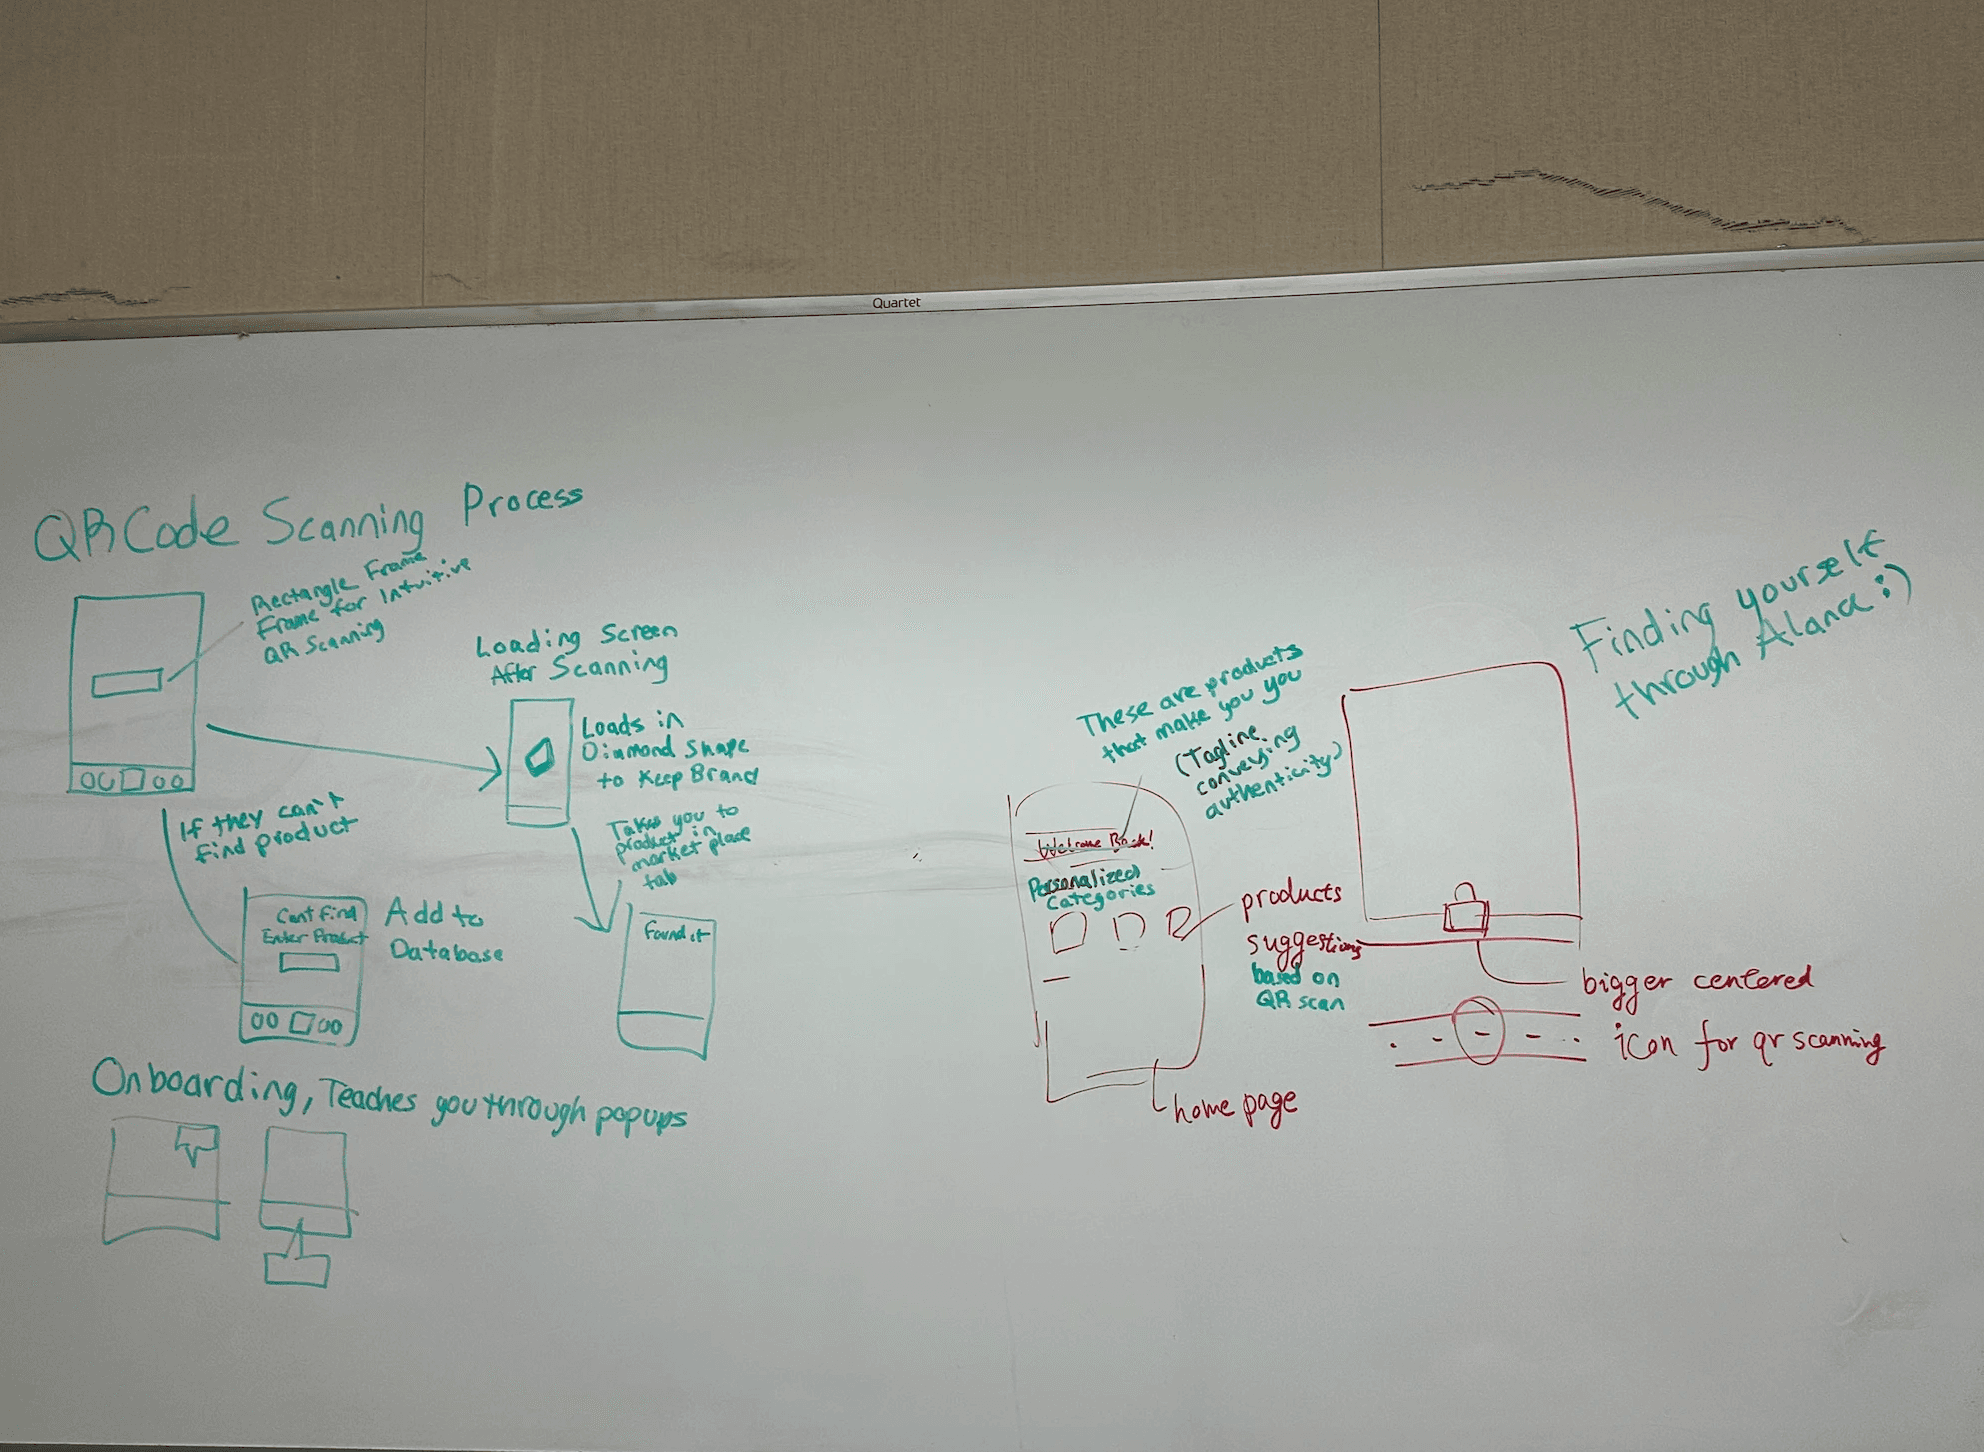 Quartet
QR Code Scanning Process
Rectangle Frame
Frame for Intuitive
QR Scanning
Loading Screen
After Scanning
Loads in
Diamond Shape
to Keep Brand
If they can't
find product
Takes you to
product in
market place
tab
Cant find
Enter Product
Add to
Database
Found it
Onboarding, Teaches you through popups
These are products
that make you you
(Tagline
conveying
authenticity)
Welcome Back!
Personalized
Categories
products
suggestions
based on
QR scan
home page
Finding yourself
through Alana :)
bigger centered
icon for qr scanning